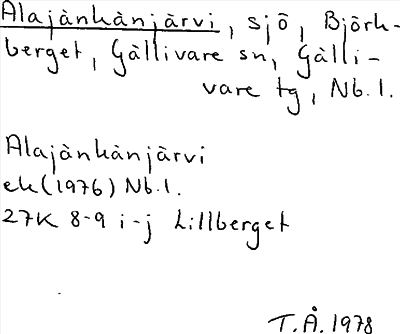 Alajänkänjärvi, sjö, Björk-
berget, Gällivare sn, Gälli-
vare tg, Nb.l.
Alajänkänjärvi
ek(1976) Nb.l.
27K 8-9 i-j Lillberget
T.Å. 1978